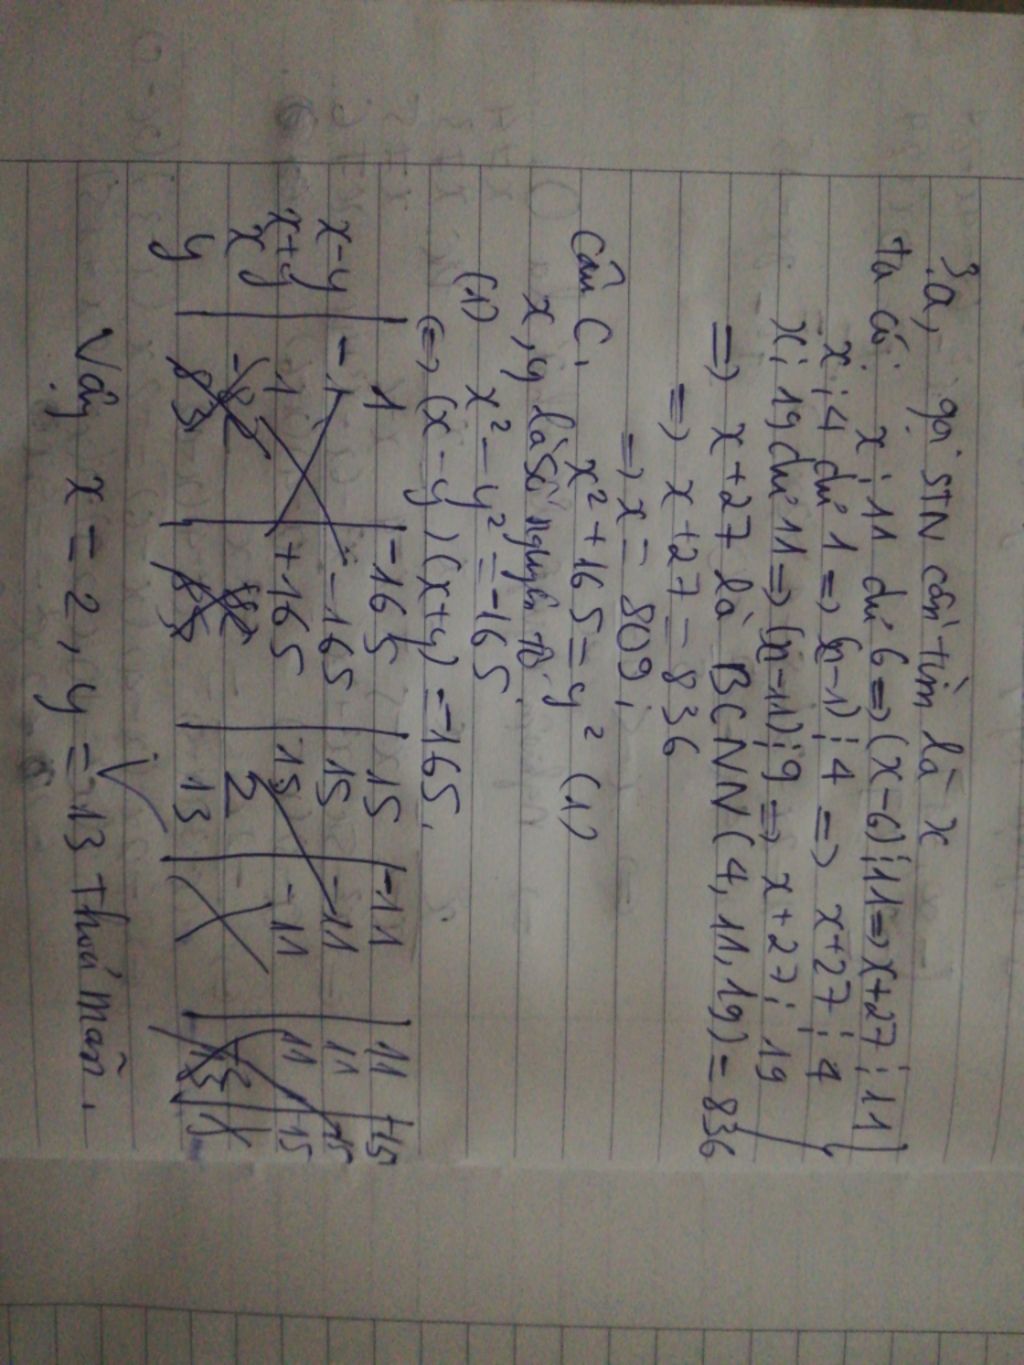 3a, gọi STN cần tìm là x
ta có: x : 11 dư 6 => (x-6) ⋮ 11 => x+27 ⋮ 11
x : 4 dư 1 => (x-1) ⋮ 4 => x+27 ⋮ 4
x : 19 dư 11 => (x-11) ⋮ 9 => x+27 ⋮ 19
=> x+27 là BCNN(4, 11, 19) = 836
=> x+27 = 836
=> x = 809.
Câu C, x² + 165 = y² (1)
x, y là số nguyên tố.
(1) x² - y² = -165
<=> (x-y)(x+y) = -165.
1 -165 15 -11 11
x-y -1 -165 -15 -11 11
x+y 1 +165 15 -11 11 -15
x 2
y 83 13
Vậy x = 2, y = 13 thoả mãn.